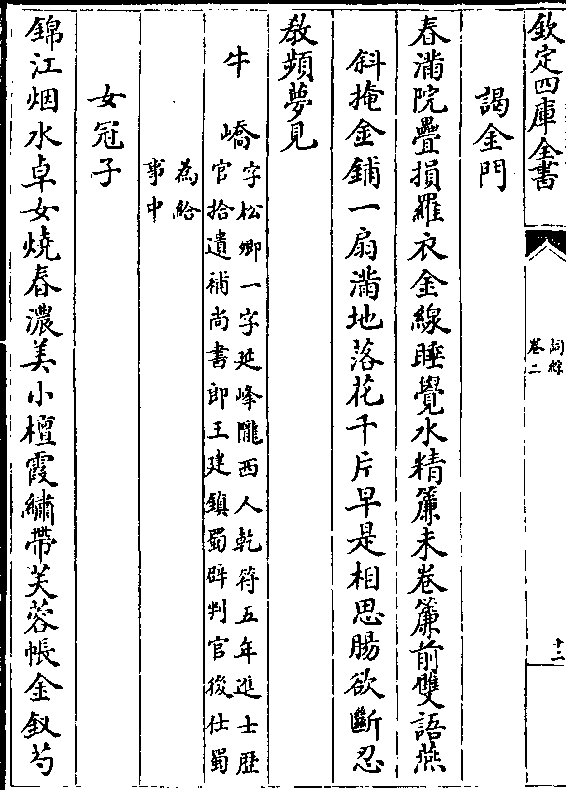 欽定四庫全書
詞綜
卷二
十二
謁金門
春滿院疊損羅衣金線睡覺水精簾未卷簾前雙語燕
斜掩金鋪一扇滿地落花千片早是相思腸欲斷忍
敎頻夢見
牛嶠
字松卿一字延峰隴西人乾符五年進士歴
官拾遺補尚書郎王建鎮蜀辟判官後仕蜀
為給
事中
女冠子
錦江烟水卓女燒春濃美小檀霞繡帶芙蓉帳金釵芍